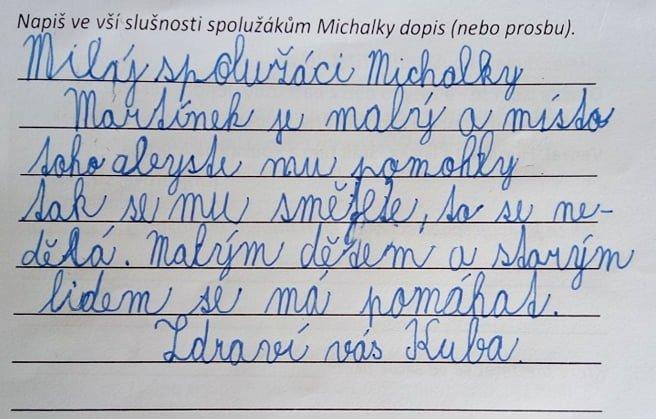 Napiš ve vší slušnosti spolužákům Michalky dopis (nebo prosbu).
Milný spolužáci Michalky
Martínek je malrý a místo
toho abyste mu pomohly
tak se mu smějete, to se ne-
dělá. Malrým dětem a starým
lidem se má pomáhat.
Zdraví vás Kuba